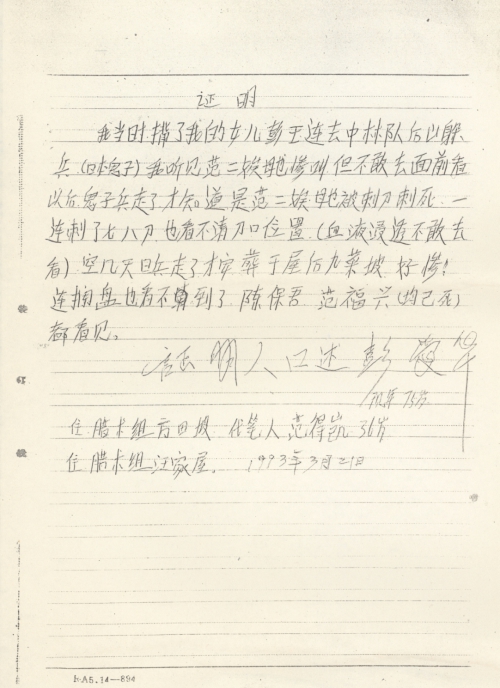 证明
我当时揹了我的女儿彭玉连去中林队后山躲
兵（日本鬼子）我听见范二娭毑惨叫但不敢去面前看
以后鬼子兵走了才知道是范二娭毑被刺刀刺死一
连刺了七八刀也看不清刀口位置（血液浸透不敢去
看）空几天日兵走了才安葬于屋后力菜坡好惨！
连 盘也看不 到了陈保吾范福兴（均已死）
都看见。
证明人口述彭
现年75岁
住腊木组方田坡代笔人范得凯36岁
住腊木组汪家屋。1993年3月21日
LA5.14—894